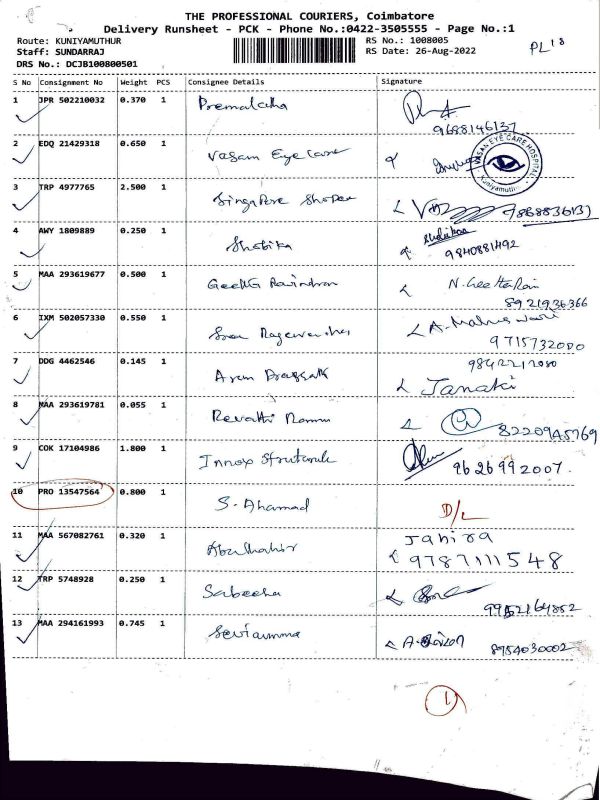 THE PROFESSIONAL COURIERS, Coimbatore
Delivery Runsheet - PCK - Phone No.:0422-3505555 - Page No.:1
Route: KUNIYAMUTHUR RS No.: 1008005
Staff: SUNDARRAJ RS Date: 26-Aug-2022
DRS No.: DCJB100800501
PL 18
S No Consignment No Weight PCS Consignee Details Signature
1 JPR 502210032 0.370 1 Premalatha
9688146137
2 EDQ 21429318 0.650 1 Vasan Eye Care
VASAN EYE CARE HOSPITAL
Kuniyamuthur
3 TRP 4977765 2.500 1 Singapore Shoppe
9868836137
4 AWY 1809889 0.250 1 Shobika
9840881492
5 MAA 293619677 0.500 1 Geetha Ravindran
8921936366
6 IXM 502057330 0.550 1 Sree
9715732080
7 DDG 4462546 0.145 1 Arun
9842212080
Janaki
8 MAA 293619781 0.055 1 Revathi
8220945769
9 COK 17104986 1.800 1 Innox
9626992007.
10 PRO 13547564 0.800 1 S. Ahamad D/L
11 MAA 567082761 0.320 1
Jahira
9787111548
12 TRP 5748928 0.250 1 Sabeeha
9952164882
13 MAA 294161993 0.745 1
8754030002
1